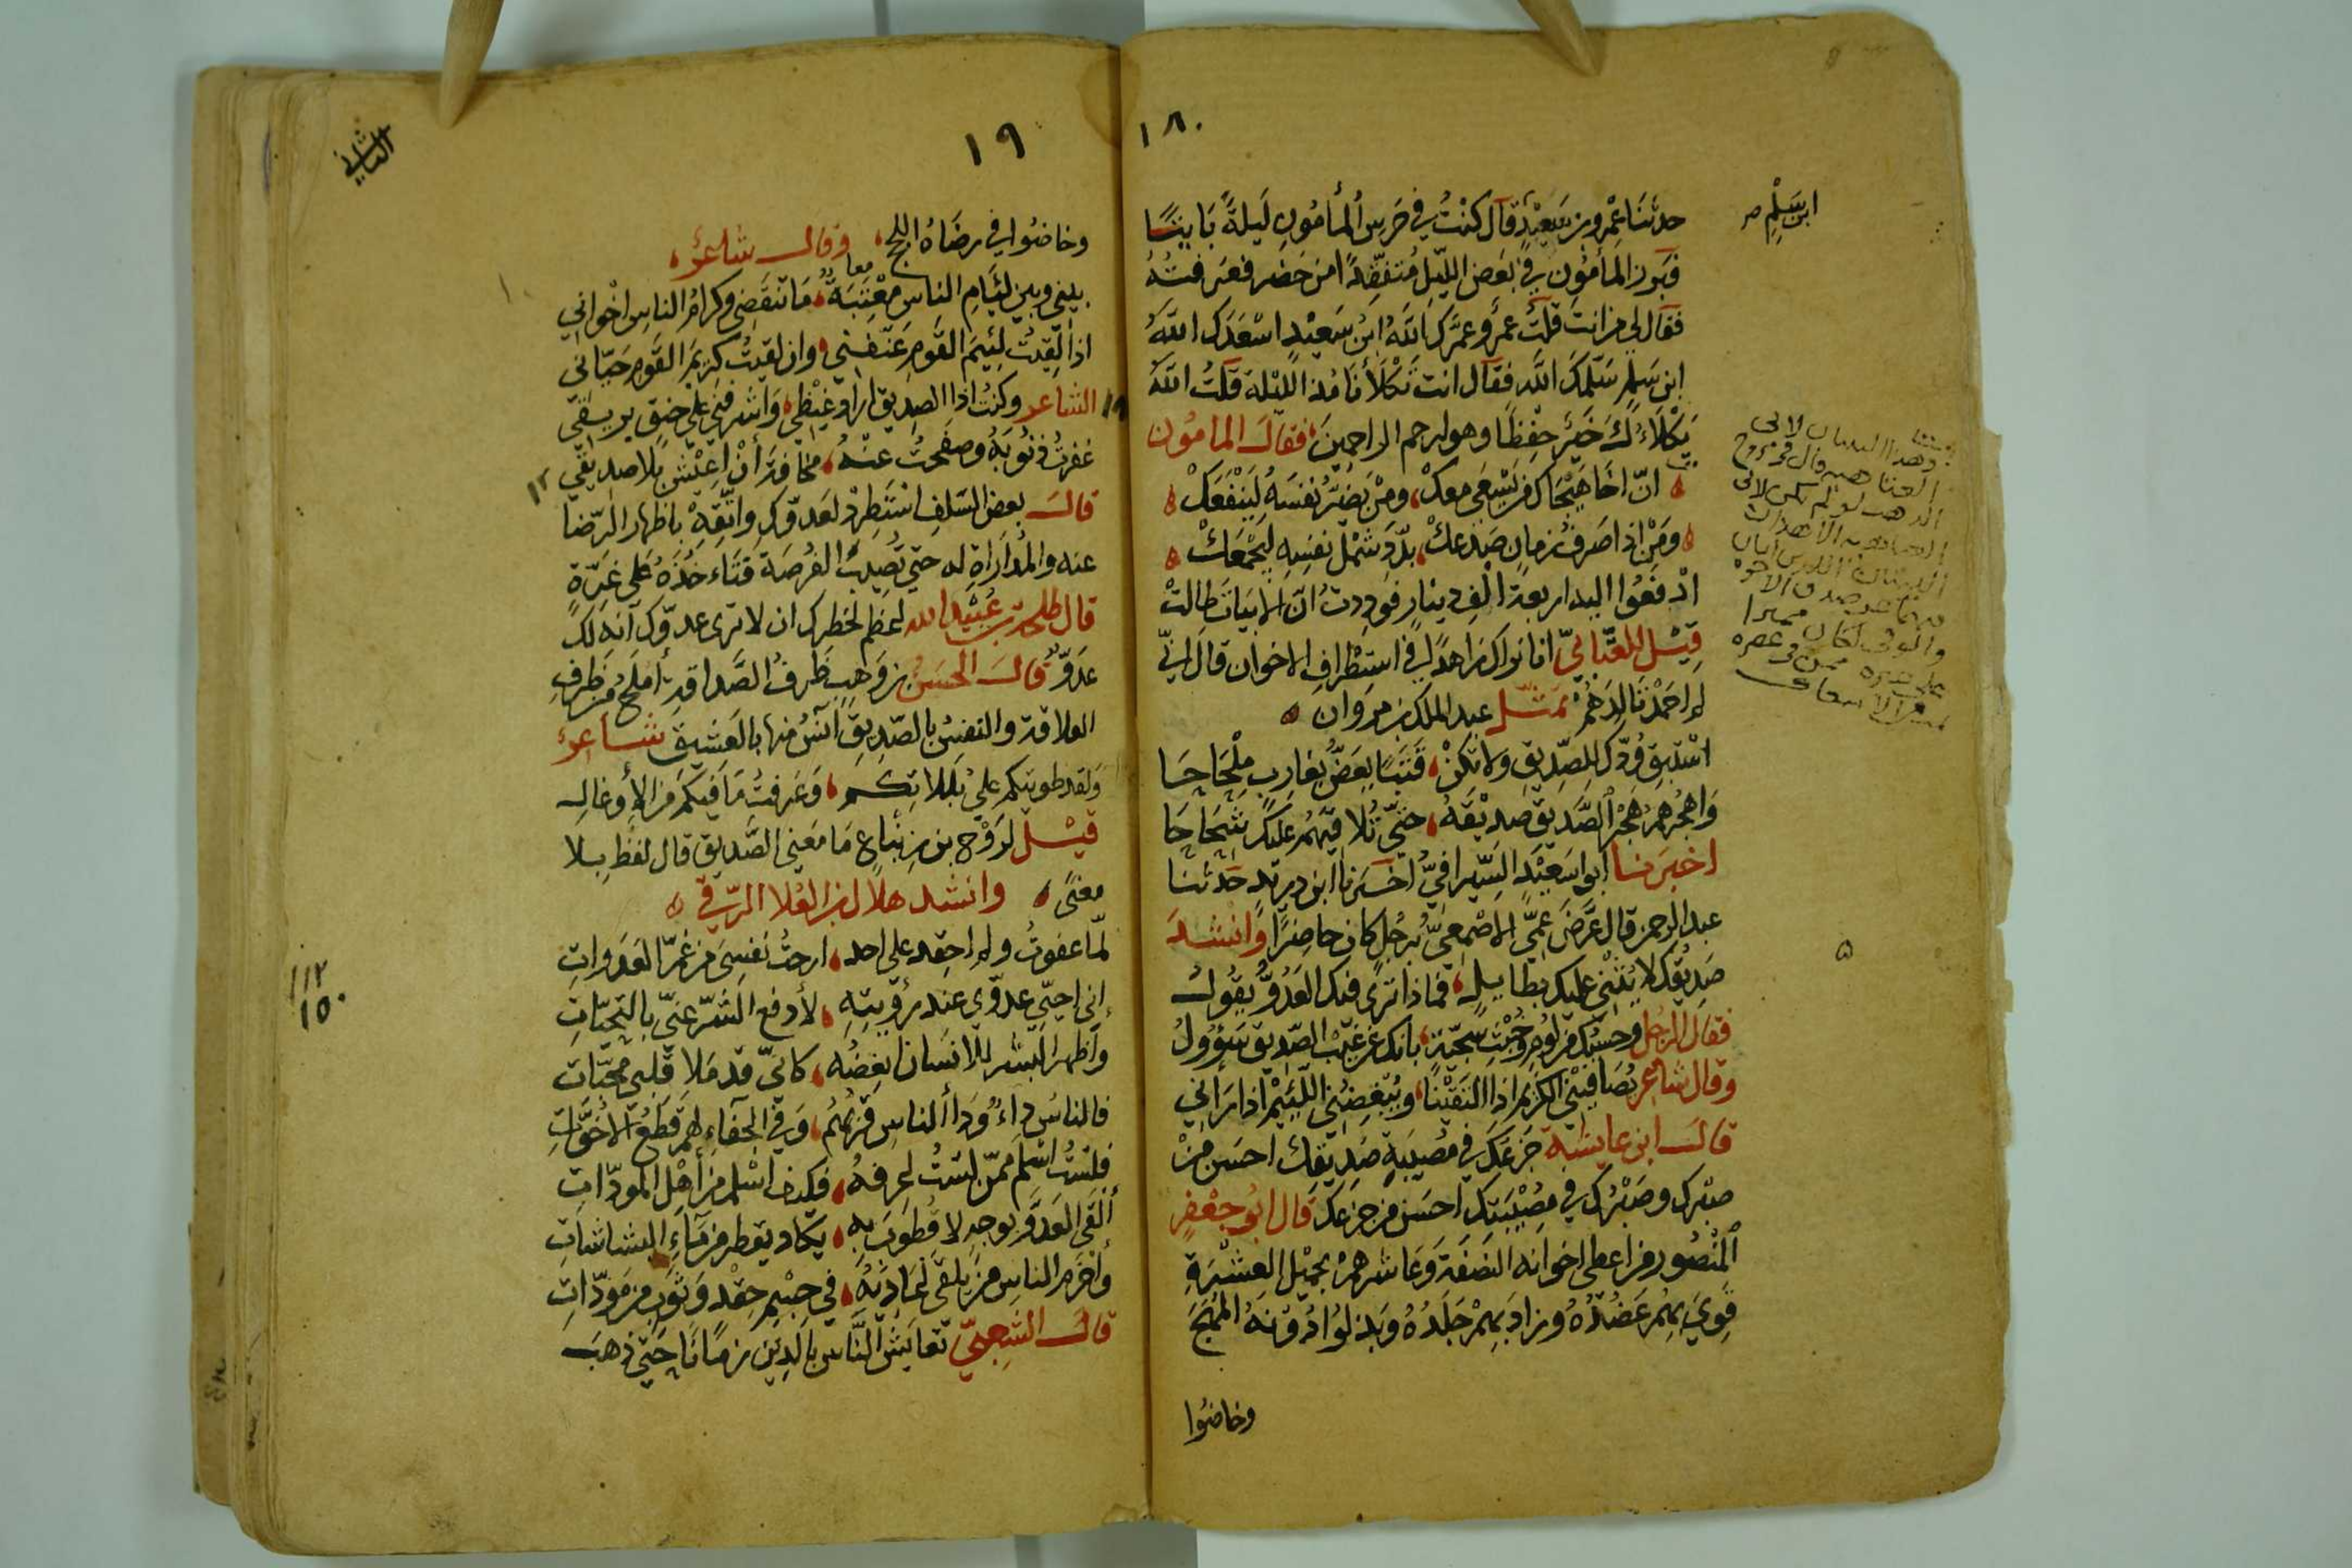 ١٨
حدثنا عمرو بن سعيد قال كنت في حرس المأمون ليلة بايتًا
فبرز المأمون في بعض الليل متفقدًا من حضر فعرفته
فقال لي من انت قلت عمرو عمرك الله ابن سعيد اسعدك الله
ابن سلم سلمك الله فقال انت تكلأنا مذ الليلة قلت الله
يكلاءك خير حفظا وهو ارحم الراحمين فقال المامون
ان اخا هيجاك من يسعى معك ومن يضر نفسه لينفعك
ومن اذا صرف زمان صدعك بدد شمل نفسه ليجمعك
ادفعوا اليه اربعة الف دينار فوددت ان الابيات طالت
قيل للعتابي انا نراك زاهدا في استظراف الاخوان قال اني
لم احمد تالدهم تمثل عبد الملك بن مروان
استبق ودك للصديق ولا تكن قتبا يعض بغارب ملحاحا
واهجرهم هجر الصديق صديقه حتى تلاقيهم عليك شحاحا
اخبرنا ابو سعيد السيرافي اخبرنا ابن دريد حدثنا
عبد الرحمن قال عرض عمي الاصمعي برجل كان حاضرا وانشد
صديقك لا يثني عليك بطايل فماذا ترى فيك العدو يقول
فقال الرجل وحسبك من لوم وخبث سجية بانك عن عيب الصديق سؤول
وقال شاعر يصافيني الكريم اذا التقينا ويبغضني اللئيم اذا رآني
قال ابن عايشة جزعك في مصيبة صديقك احسن من
صبرك وصبرك في مصيبتك احسن من جزعك قال ابو جعفر
المنصور من اعطى اخوانه النصفة وعاشرهم بجميل العشرة
قوي بهم عضده وزاد بهم جلده وبذلوا دونه المهج
وخاضوا
ابن سلم صح
١٩
الثاني
وخاضوا في رضاه اللجج وقال شاعر
بيني وبين لئام الناس معتبة ما تنقضي وكرام الناس اخواني
اذا لقيت لئيم القوم عنفني وان لقيت كريم القوم حياني
الشاعر وكنت اذا الصديق اراد غيظي واشرقني على حنق بريقي
غفرت ذنوبه وصفحت عنه مخافة أن اعيش بلا صديق
قال بعض السلف استطرد لعدوك واتقه باظهار الرضا
عنه والمداراة له حتى تصيب الفرصة فتاءخذه على غرة
قال طلحة بن عبيد الله لعظم لخطرك ان لا ترى عدوك انه لك
عدو قال الحسن بن وهب ظرف الصداقة أملح من ظرف
العلاقة والنفس بالصديق آنس منها بالعشيق شاعر
ولقد طويتكم على بللاتكم وعرفت ما فيكم من الأوغال
قيل لروح بن زنباع ما معنى الصديق قال لفظ بلا
معنى وانشد هلال بن العلا الرقي
لما عفوت ولم احقد على احد ارحت نفسي من غم العدوات
إني احيي عدوي عند رؤيته لأدفع الشر عني بالتحيات
واظهر البشر للانسان ابغضه كاني قد ملا قلبي محبات
فالناس داء ودأ الناس قربهم وفي الجفاء لهم قطع الاخوات
فلست اسلم ممن لست اعرفه فكيف اسلم من أهل المودات
ألقى العدو بوجه لا قطوب به يكاد يقطر من ماء البشاشات
واخرم الناس من يلقى اعاديه في جسم حقد وثوب من مودات
قال الشعبي تعايش الناس بالدين زمانا حتى ذهب